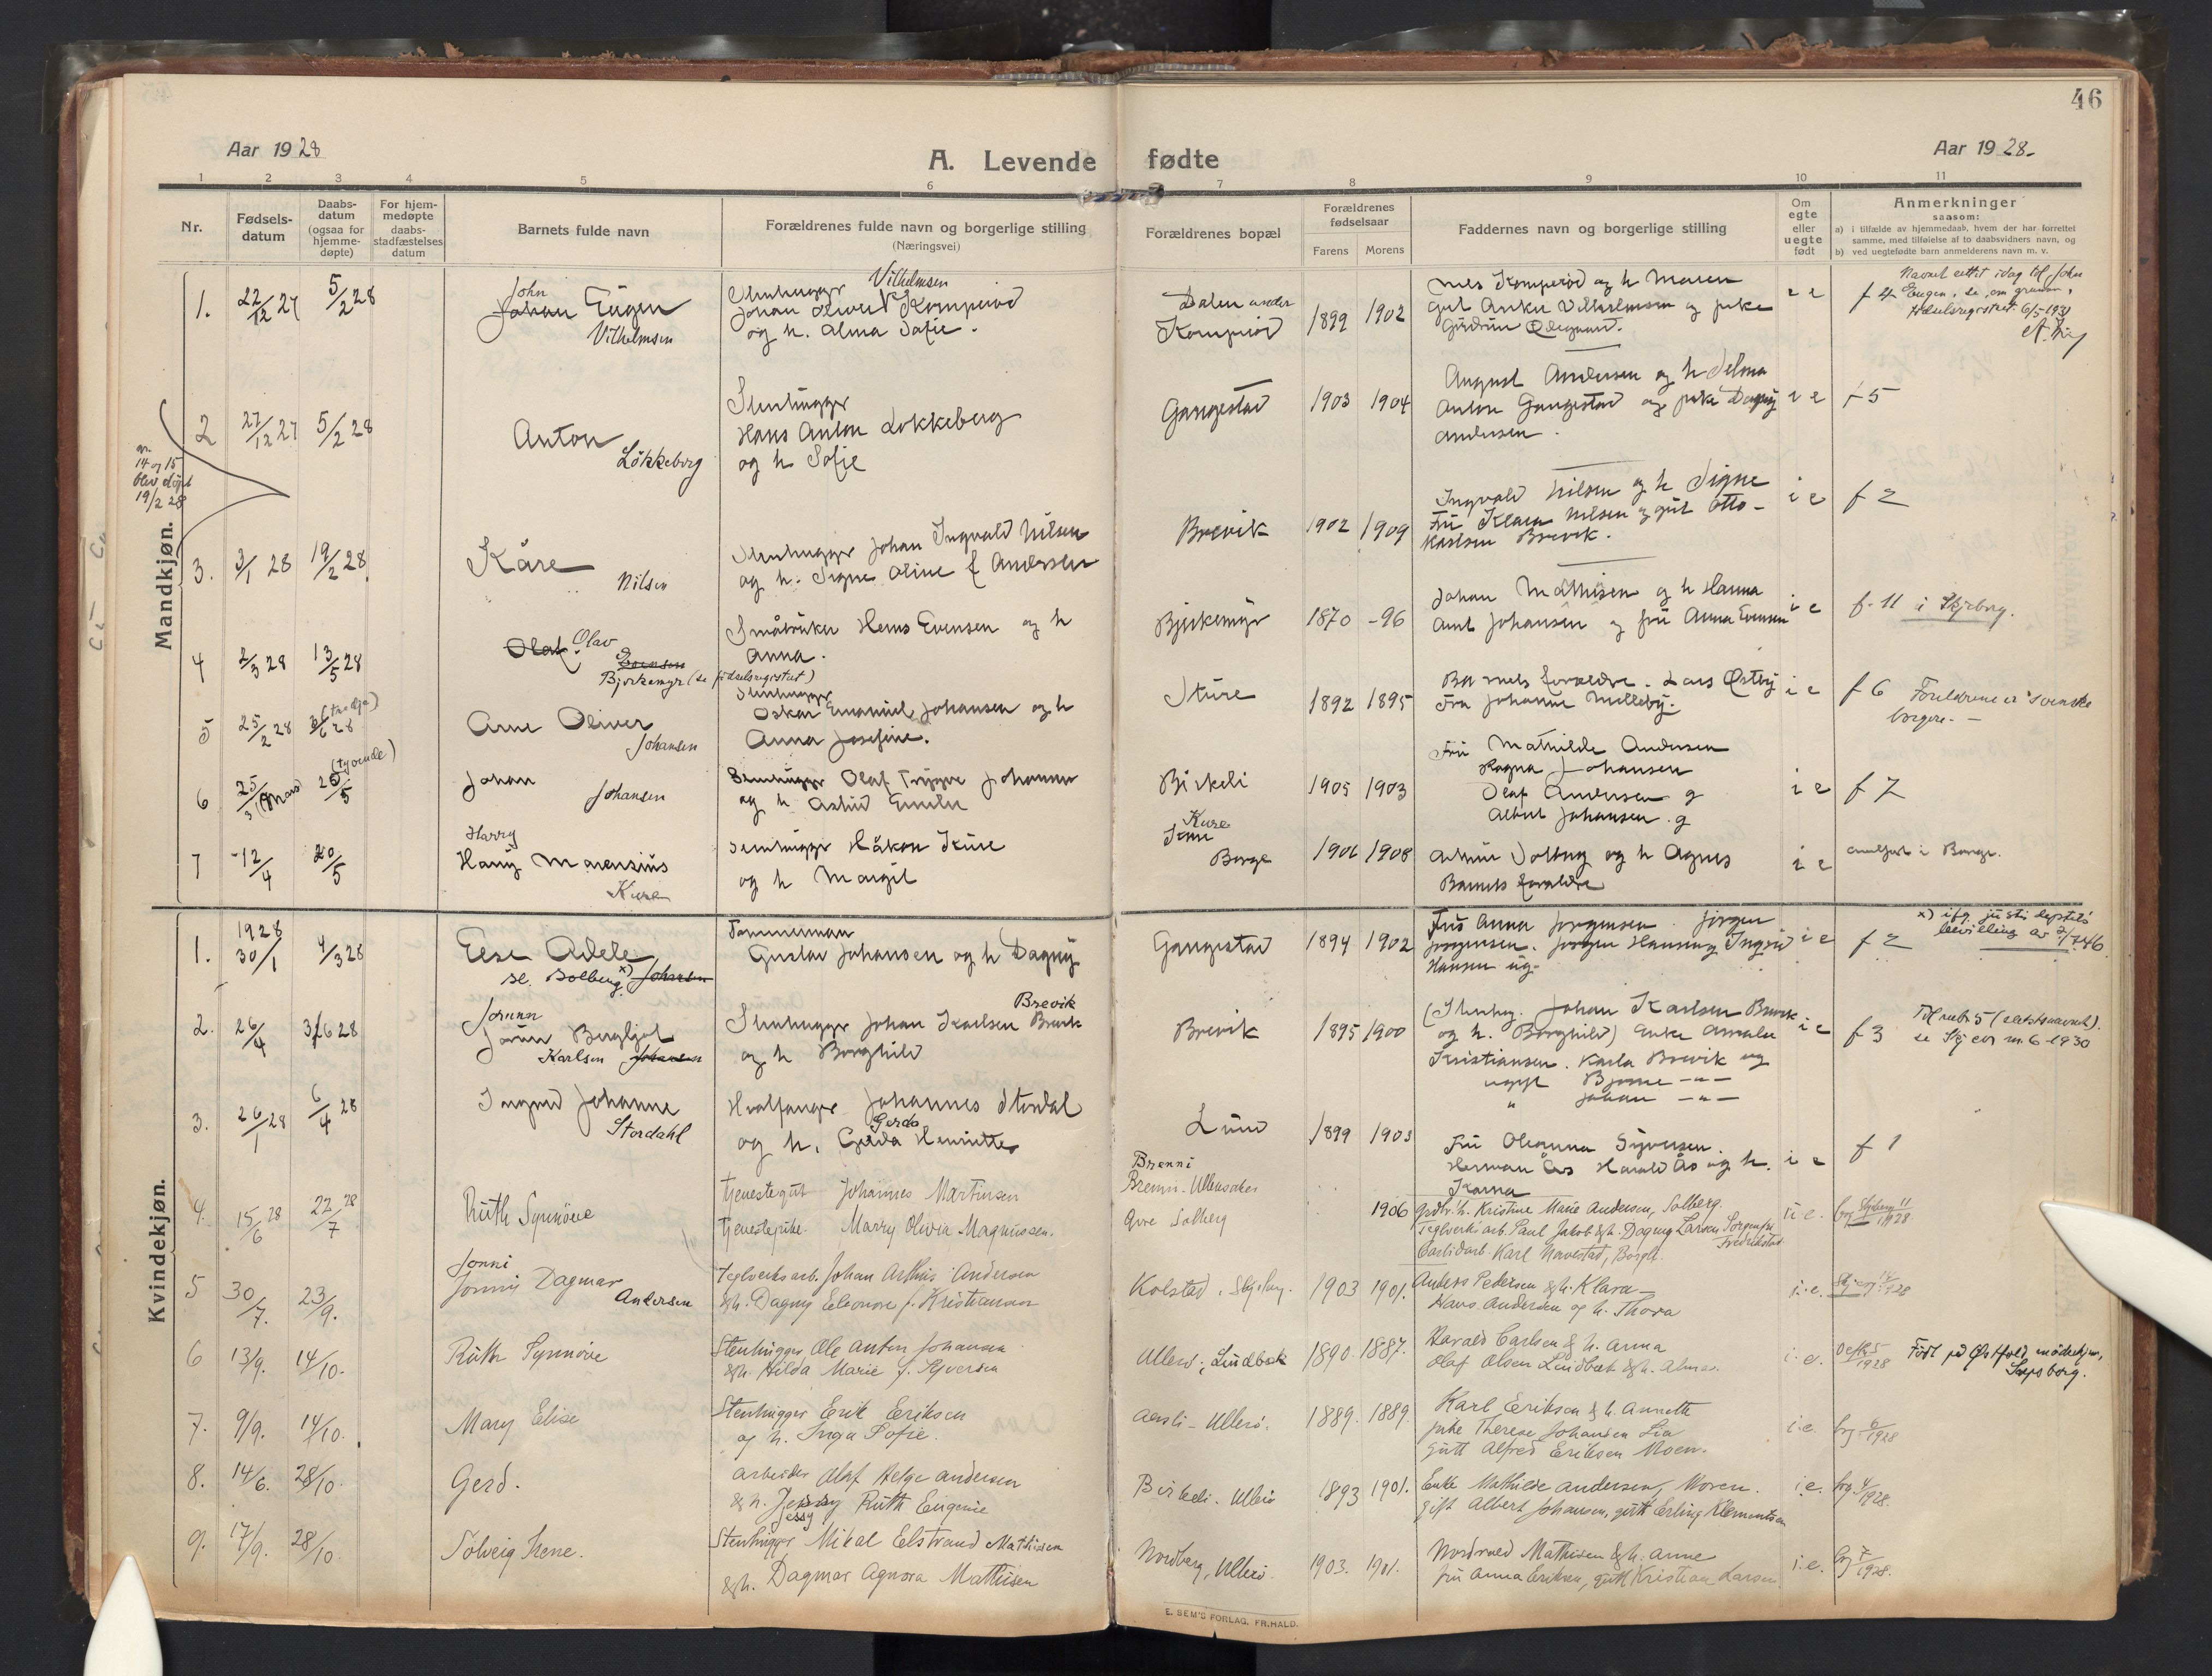 46
Aar 1928
A. Levende fødte
Aar 1928.
1 2 3 4 5 6 7 8 9 10 11
Nr.
Fødsels-
datum
Daabs-
datum
(ogsaa for
hjemme-
døpte)
For hjem-
medøpte
daabs-
stadfæstelses
datum
Barnets fulde navn
Forældrenes fulde navn og borgerlige stilling
(Næringsvei)
Forældrenes bopæl
Forældrenes
fødselsaar
Farens Morens
Faddernes navn og borgerlige stilling
Om
egte
eller
uegte
født
Anmerkninger
saasom:
a) i tilfælde av hjemmedaab, hvem der har forrettet
samme, med tilføielse af to daabsvidners navn, og
b) ved uegtefødte barn anmelderens navn m. v.
Mandkjøn.
nr.
14 og 15
blev døpt
19/2 28
1. 22/12 27 5/2 28
John
Johan Eugen
Vilhelmsen
Stenhugger Vilhelmsen
Johan Oliver Komperød
og h. Alma Sofie.
Dalen under
Komperød
1899 1902
Nils Komperød og h Maren
gut Anker Vilhelmsen og pike
Gudrun
i e
f 4
Navnet rettet idag til John
Eugen, se om grunden,
fødselsregistret 6/5-1931
2 27/12 27 5/2 28
Anton
Løkkeberg
Stenhugger
Hans Anton Løkkeberg
og h Sofie
Gangestad
1903 1904
August Andersen og h Selma
Anton Gangestad og pike Dagny
Andersen.
i e
f 5
3. 3/1 28 19/2 28
Kåre
Nilsen
Stenhugger Johan Ingvald Nilsen
og h. Signe Oline f Andersen
Brevik
1902 1909
Ingvald Nilsen og h Signe
Fru Klara Nilsen og gut Otto
Karlsen Brevik.
i e
f 2
4 2/3 28 13/5 28
Olaf Olav
Evensen
Bjørkemyr (se fødselsregistret)
Småbruker Hans Evensen og h
Anna.
Bjørkemyr
1870 -96
Johan Mathisen og h Hanna
Arnt Johansen og fru Anna Evensen
i e
f. 11 i Skjeberg.
5 25/2 28 3/6 28 (tredje)
Arne Oliver
Johansen
Stenhugger
Oskar Emanuel Johansen og h
Anna Josefine.
Sture
1892 1895
Barnets forældre. Lars Østby
Fra Johanne Melleby.
i e
f 6 Foreldrene er svenske
borgere. -
6 25/3 (Mars) 20/5 (tyvende)
Johan
Johansen
Stenhugger Olaf Trygve Johansen
og h Astrid Emelie
Birkeli
1905 1903
Fru Mathilde Andersen
Ragna Johansen
Olaf Andersen g
Albert Johansen. g
i e
f 7
7 12/4 20/5
Harry
Harry Marensius
Kure
Stenhugger Håkon Kure
og h Margit
Kure
Borge
1906 1908
Artur Solberg og h Agnes
Barnets forældre
i e
anført i Borge.
Kvindekjøn.
1. 1928
30/1 4/3 28
Else Adele
se. Solberg x) Johansen
Tømmerman
Gustav Johansen og h Dagny
Gangestad
1894 1902
Fru Anna Jørgensen. Jørgen
Jørgensen. Jørgen Hansen og Ingrid
Hansen ug.
i e
f 2
x) ifg. justisdeptets
bevilling av 2/7.46
2. 26/4 3/6 28
Jorunn
Jorun Bergljot
Karlsen Johansen
Stenhugger Johan Karlsen Brevik
Brevik
og h Borghild
Brevik
1895 1900
(Stenhug. Johan Karlsen Brevik
og h. Borghild) Enke Amalie
Kristiansen. Karla Brevik ug
ugift Bjarne -"-
" Johan -"-
i e
f 3
Til rub 5 (slektsnavnet).
se Skj cor nr. 6-1930
3. 26/1 28 6/4 28
Ingrid Johanne
Stordahl
Hvalfanger Johannes Stordal
Gerda
og h. Gerda Henriette
Lund
1899 1903
Fru Oleanna Syversen.
Herman Ås Harald Ås og h.
Karna
i e
f 1
4. 15/6 28 22/7 28
Ruth Synnöve
Tjenestegut Johannes Martinsen
Tjenestepike. Marry Olivia Magnussen.
Brenni
Brenni-Ullensaker
Øvre Solberg
1906
Grdbr. h. Kristine Marie Andersen, Solberg.
Teglverksarb. Paul Jakob &h. Dagny Larsen Sorgenfri
Fredrikstad
Karl Navestad, Borgh.
u. e.
fvg. Skjeberg 11/1928
5 30/7. 23/9.
Jonni
Jonni Dagmar
Andersen
Teglverksarb. Johan Arthur Andersen
&h. Dagny Eleonore f. Kristiansen
Kolstad, Skjeberg.
1903 1901.
Anders Pedersen &h. Klara
Hans Andersen og h. Thora
i. e.
6 13/9. 14/10.
Ruth Synnöve
Stenhugger Ole Anton Johansen
&h. Hilda Marie f. Syversen
Ullerø, Lindbæk
1890. 1887.
Harald Carlsen & h. Anna
Olaf Olsen Lindbæk &h. Alma.
i. e.
Født på Østfold mødrehjem,
Sarpsborg.
7. 9/9. 14/10.
Mary Elise
Stenhugger Erik Eriksen
og h. Inga Sofie.
Aarsli - Ullerø.
1889. 1889.
Karl Eriksen & h. Annette
pike Therese Johansen Lia
gutt Alfred Eriksen Moen.
i e.
fvg 6/1928
8. 14/6. 28/10.
Gerd.
Arbeider Olaf Helge Andersen
&h. Jenny Ruth Eugenie
Jessy
Birkeli. Ullerø
1893 1901.
Enke Mathilde Andersen, Moren.
gift Albert Johansen, gutt Erling Klementsen
i. e.
fvg. 4/1928.
9. 17/9. 28/10.
Solveig Irene.
Stenhugger Mikal Elstrand Mathisen
&h. Dagmar Agnora Mathisen
Nordberg, Ullerø.
1903. 1901.
Nordvald Mathisen &h. Anne
fru Anna Eriksen, gutt Kristian Larsen
i. e.
fvg 7/1928.
E. SEM'S FORLAG, FR.HALD.